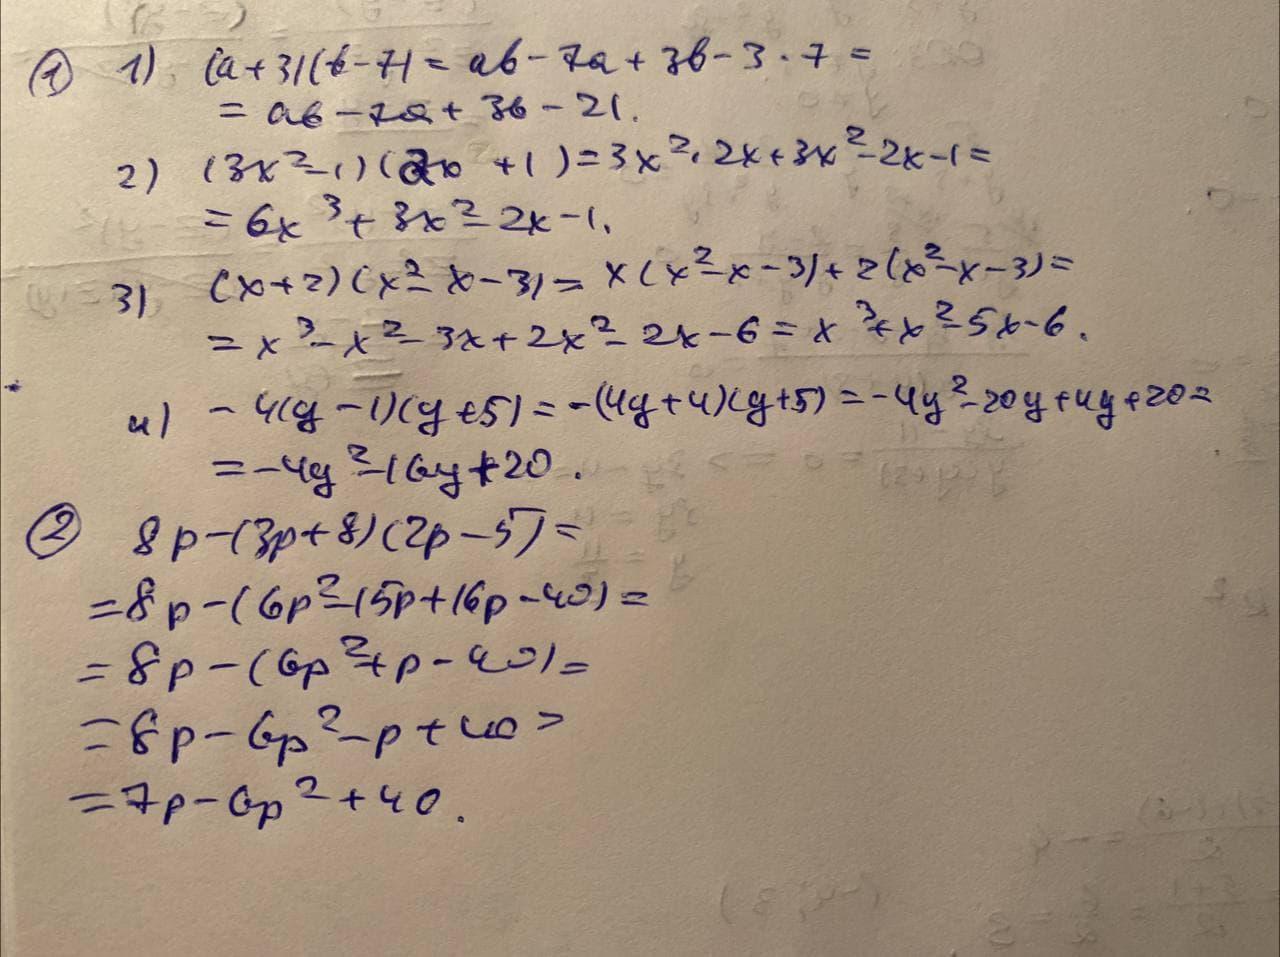 ① 1) (a+3)(b-7) = ab - 7a + 3b - 3 · 7 =
= ab - 7a + 3b - 21.
2) (3x² - 1)(2x + 1) = 3x² · 2x + 3x² - 2x - 1 =
= 6x³ + 3x² - 2x - 1.
3) (x+2)(x² - x - 3) = x(x² - x - 3) + 2(x² - x - 3) =
= x³ - x² - 3x + 2x² - 2x - 6 = x³ + x² - 5x - 6.
4) - 4(y - 1)(y + 5) = -(4y + 4)(y + 5) = -4y² - 20y + 4y + 20 =
= -4y² - 16y + 20.
② 8p - (3p + 8)(2p - 5) =
= 8p - (6p² - 15p + 16p - 40) =
= 8p - (6p² + p - 40) =
= 8p - 6p² - p + 40 =
= 7p - 6p² + 40.